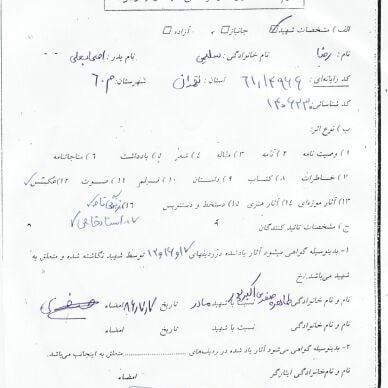 الف ) مشخصات شهید ☑ جانباز □ آزاده □
نام : رضا نام خانوادگی : سلیمی نام پدر : اصغرعلی
کد رایانه‌ای : ۶۱۱۴۹۶۶ استان : تهران شهرستان : م ۶۰
کد شناسائی : ۱۴۰۶۲۳۰
ب ) نوع اثر :
۱ ) وصیت نامه ۲ ) نامه ۳ ) مقاله ۴ ) شعر ۵ ) یادداشت ۶ ) مناجاتنامه
۷ ) خاطرات ۸ ) کتاب ۹ ) داستان ۱۰ ) فیلم ۱۱ ) صوت ۱۲ ) عکس
۱۳ ) آثار موزه‌ای ۱۴ ) آثار هنری ۱۵ ) دستخط و دستنویس ۱۶ ) زندگی نامه
۱۷
ج ) مشخصات تائید کنندگان
۱- بدینوسیله گواهی میشود آثار یاد شده در ردیفهای ۱۲ و ۱۶ و ۱۷ توسط شهید نگاشته شده و متعلق به
شهید می‌باشد.
نام و نام خانوادگی طاهره نسبت با شهید مادر تاریخ ۸۶/۷/۷ امضاء
نام و نام خانوادگی نسبت با شهید تاریخ امضاء
۲- بدینوسیله گواهی می‌شود آثار یاد شده در ردیف‌های متعلق به اینجانب می‌باشد.
نام و نام خانوادگی ایثارگر امضاء